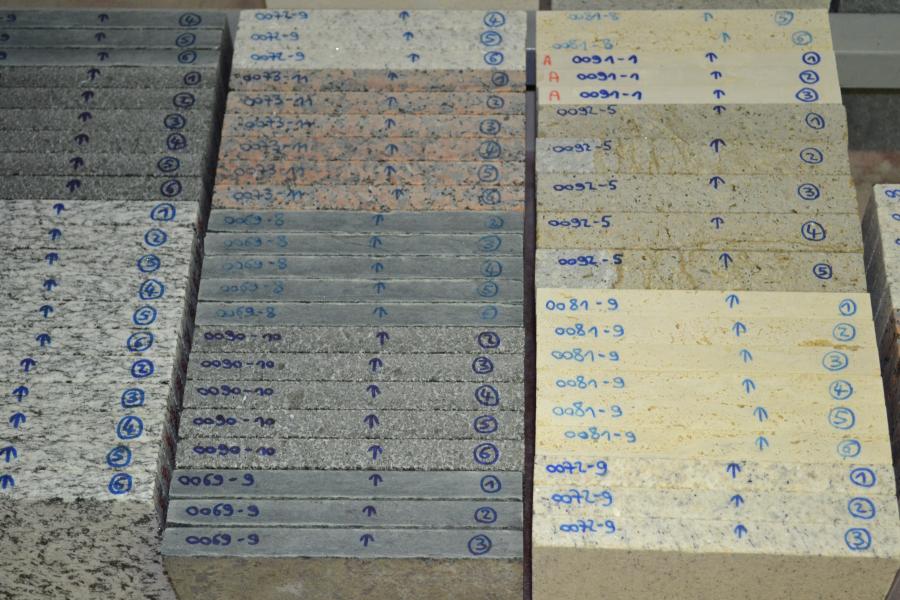 ↑ ④
↑ ⑤
↑ ⑥
↑ ①
↑ ②
↑ ③
↑ ④
↑ ⑤
↑ ⑥
↑ ①
↑ ②
↑ ③
↑ ④
↑ ⑤
↑ ⑥
↑ ②
↑ ③
↑ ④
↑ ⑤
↑ ⑥
0072-9 ↑ ④
0072-9 ↑ ⑤
0072-9 ↑ ⑥
0073-11 ①
0073-11 ↑ ②
0073-11 ↑ ③
0073-11 ↑ ④
0073-11 ↑ ⑤
0073-11 ↑ ⑥
0069-8 ↑ ②
0069-8 ↑ ③
0069-8 ↑ ④
0069-8 ↑ ⑤
0069-8 ↑ ⑥
0090-10 ↑ ②
0090-10 ↑ ③
0090-10 ↑ ④
0090-10 ↑ ⑤
0090-10 ↑ ⑥
0069-9 ↑ ①
0069-9 ↑ ②
0069-9 ↑ ③
0081-8 ↑ ⑤
0081-8 ↑ ⑥
A 0091-1 ↑ ①
A 0091-1 ↑ ②
A 0091-1 ↑ ③
0092-5 ↑ ①
0092-5 ↑ ②
0092-5 ↑ ③
0092-5 ↑ ④
0092-5 ↑ ⑤
0081-9 ↑ ①
0081-9 ↑ ②
0081-9 ↑ ③
0081-9 ↑ ④
0081-9 ↑ ⑤
0081-9 ↑ ⑥
0072-9 ↑ ①
0072-9 ↑ ②
0072-9 ↑ ③